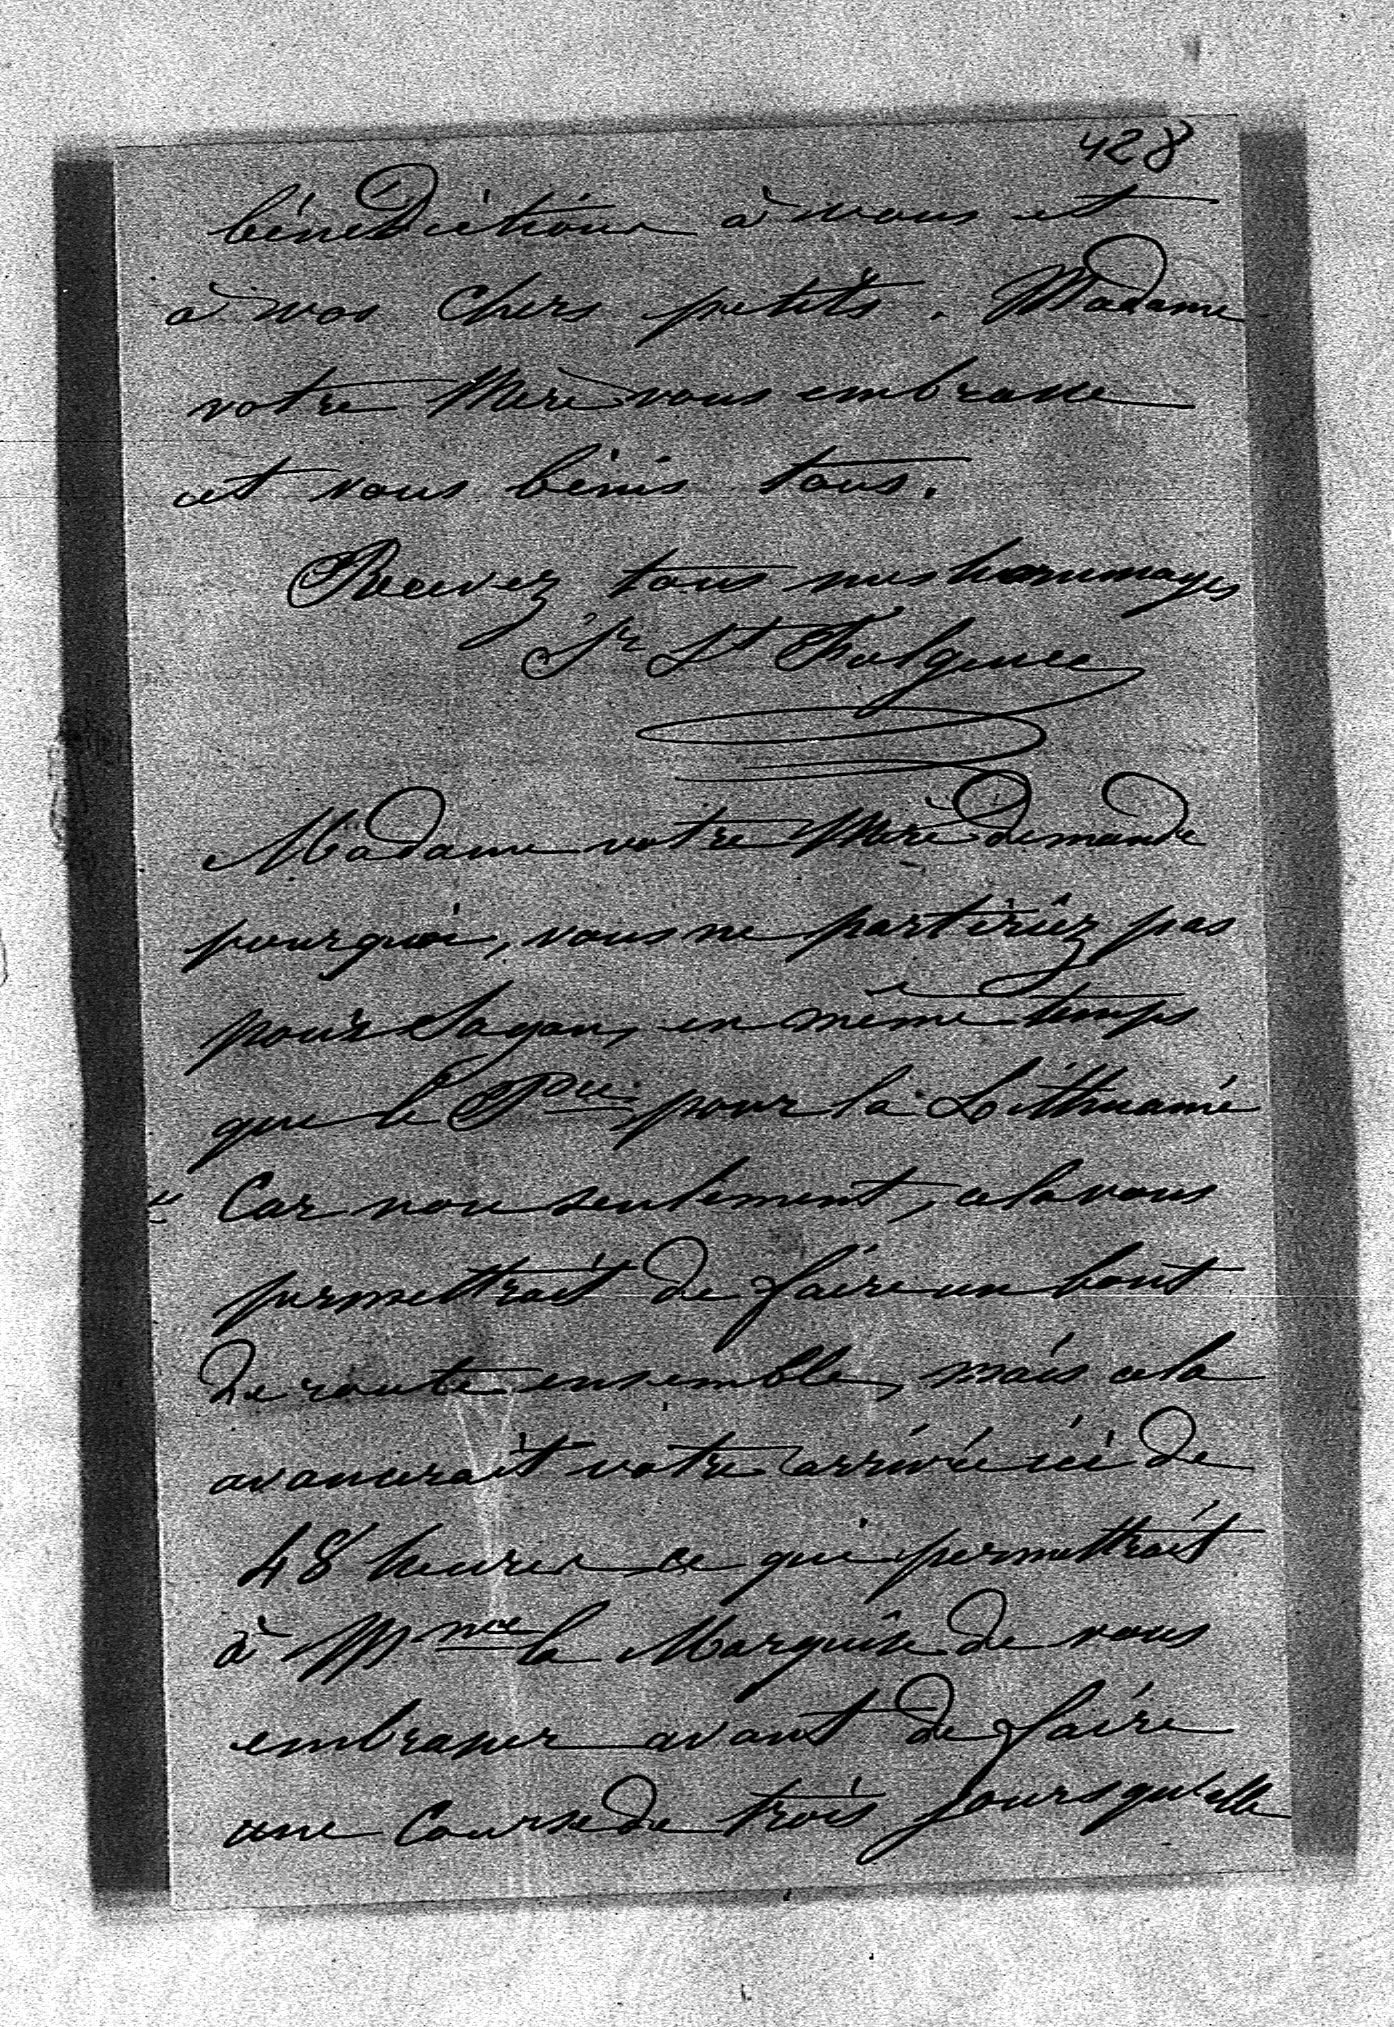 428
bénédictions à vous et
à vos chers petits. Madame
votre Mère vous embrasse
et vous bénis tous.
Recevez tous mes hommages
Sr St Fulgence
Madame votre Mère demande
pourquoi, vous ne partiriez pas
pour Sagan, en même temps
que le Pce pour la Lithuanie
Car non seulement, cela vous
permettrait de faire un bout
de route ensemble, mais cela
avancerait votre arrivée ici de
48 heures ce qui permettrait
à Mme la Marquise de vous
embrasser avant de faire
une course de trois jours qu'elle